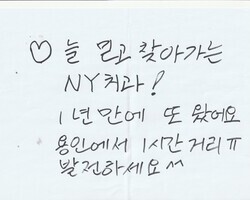 ♡ 늘 믿고 찾아가는
NY치과!
1년만에 또 왔어요
용인에서 1시간 거리ㅠ
발전하세요^^